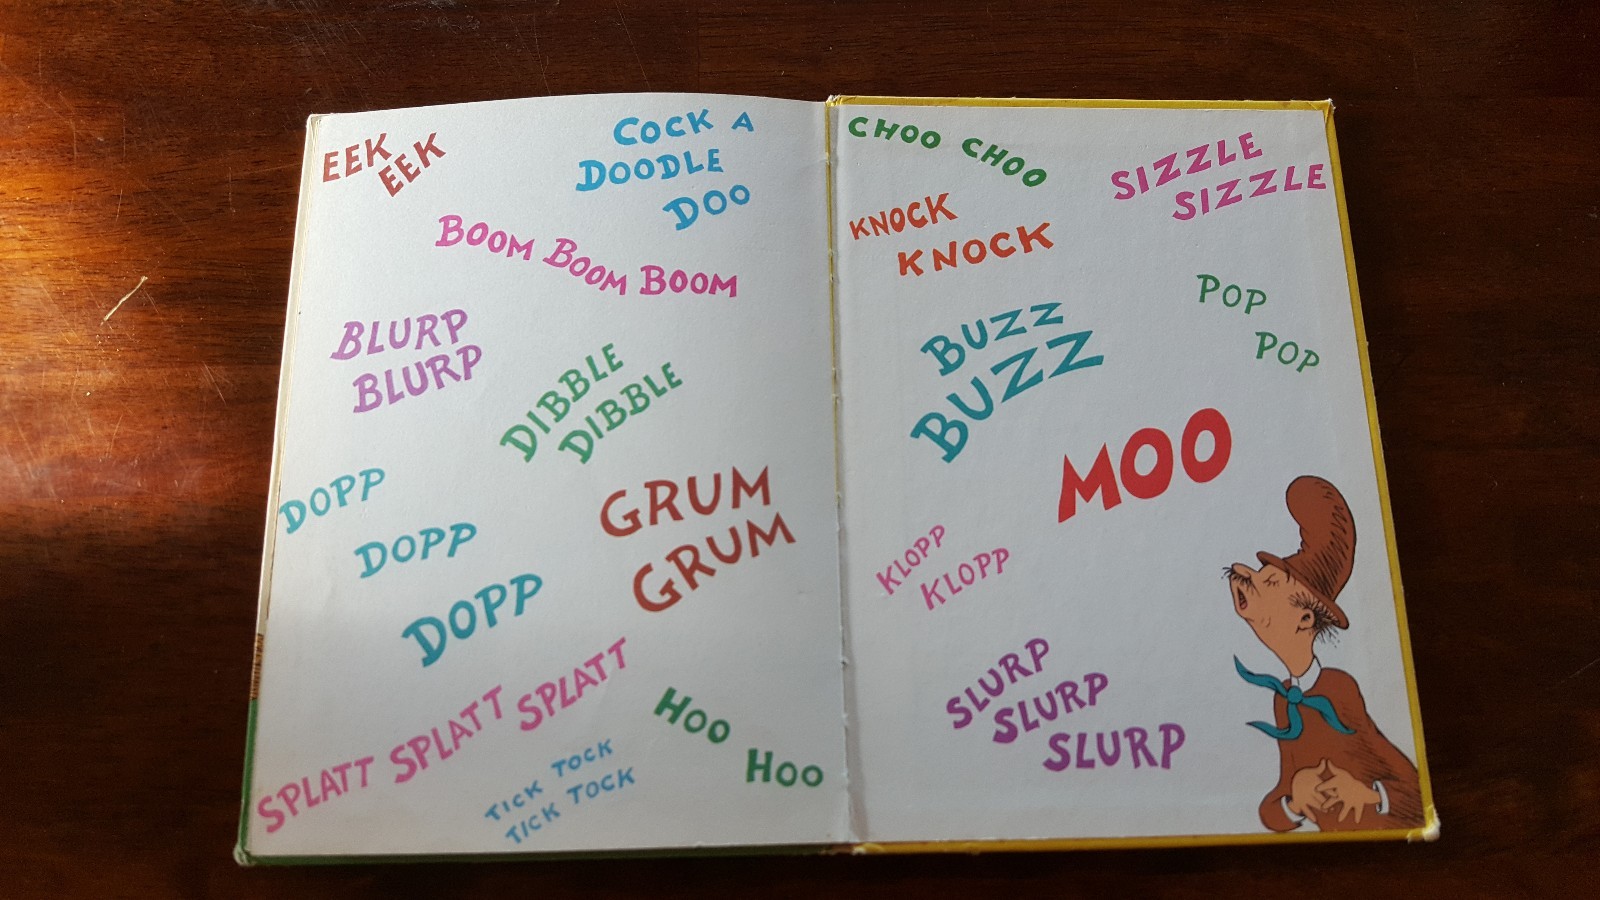 EEK
EEK
COCK A
DOODLE
DOO
BOOM BOOM BOOM
BLURP
BLURP
DIBBLE
DIBBLE
DOPP
DOPP
DOPP
GRUM
GRUM
SPLATT SPLATT SPLATT
TICK TOCK
TICK TOCK
HOO
HOO
CHOO CHOO
SIZZLE
SIZZLE
KNOCK
KNOCK
POP
POP
BUZZ
BUZZ
MOO
KLOPP
KLOPP
SLURP
SLURP
SLURP